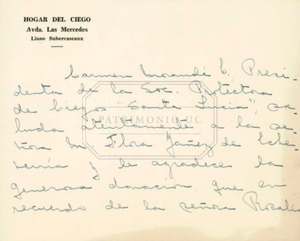 HOGAR DEL CIEGO
Avda. Las Mercedes
Llano Subercaseaux
Carmen Morandé C., Presi-
denta de la Soc. Protectora
de Ciegos "Santa Lucia", sa-
luda atentamente a la se-
ñora M. Flora Yañez de Eche-
verria y le agradece la
generosa donacion que en
recuerdo de la señora Rosalia
PATRIMONIO UC